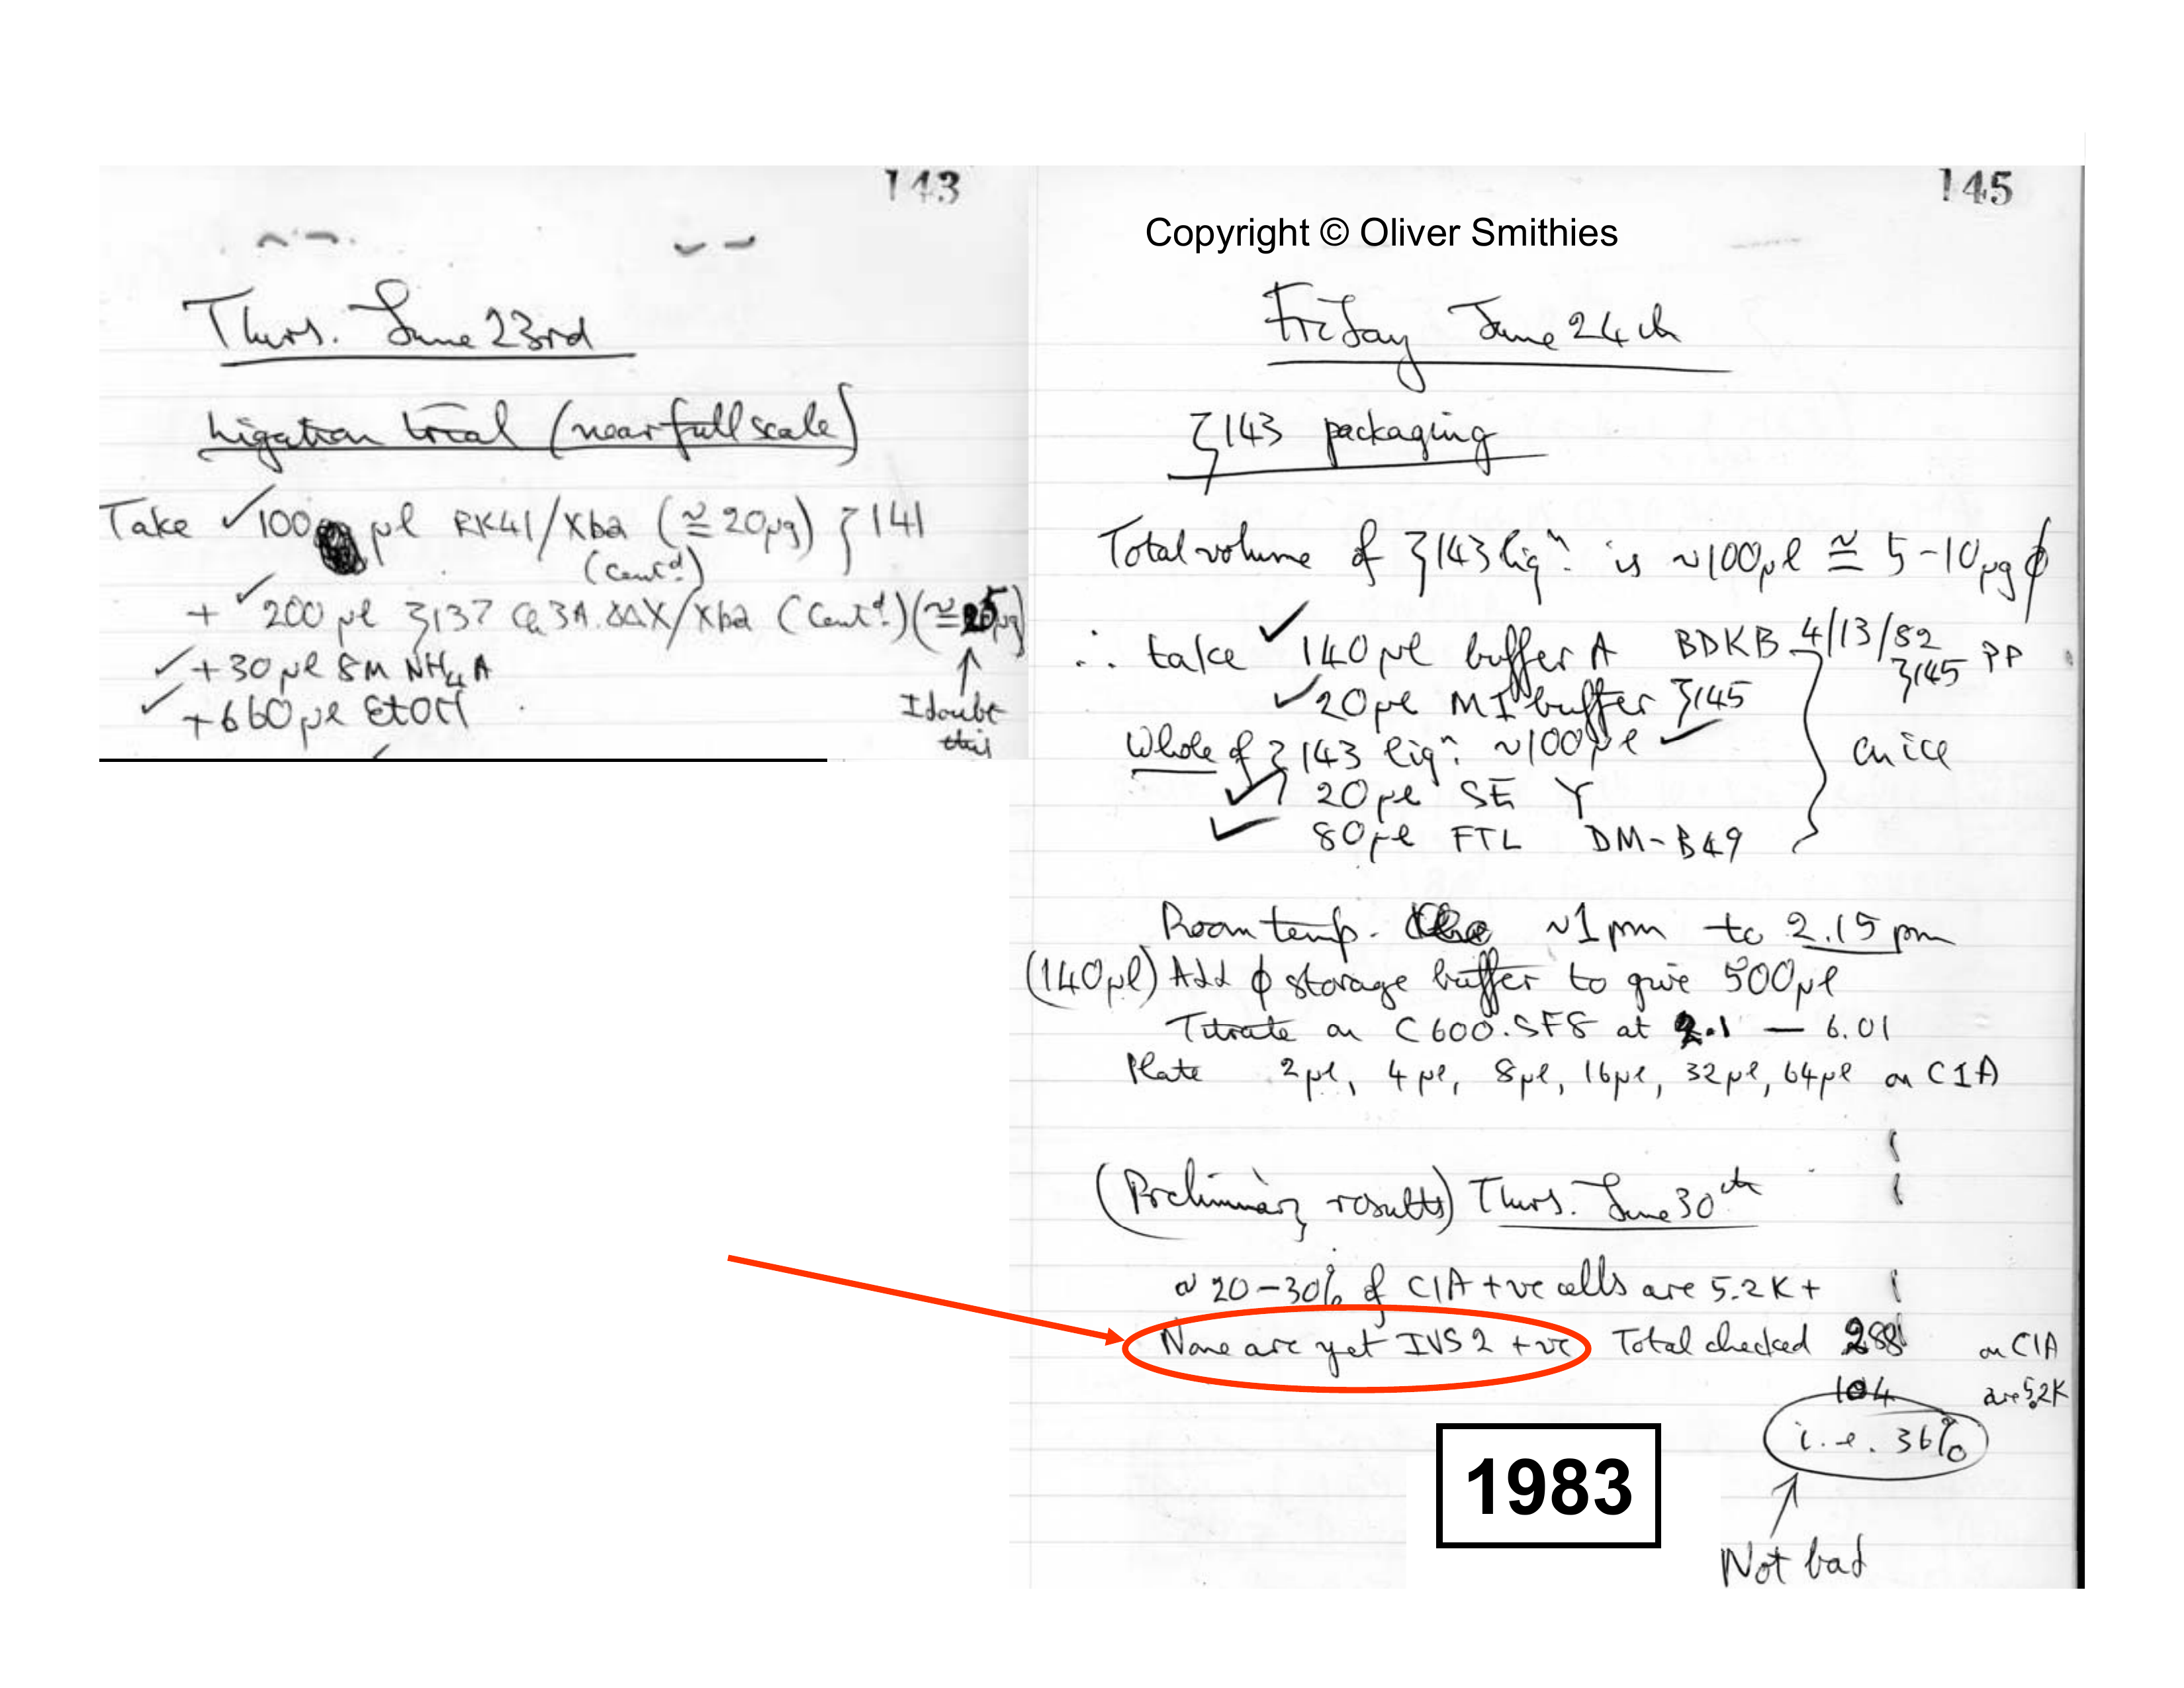 143
Thurs. June 23rd
Ligation trial (near full scale)
Take ✓100 µl RK41/Xba (≅ 20µg) ξ 141
(Cont'd)
+ ✓200 µl ξ137 Ca3A.ΔΔX/Xba (Cont'd) (≅ 5µg)
✓ +30 µl 8M NH4A
✓ +660 µl EtOH
I doubt
this
145
Copyright © Oliver Smithies
Friday June 24th
ξ143 packaging
Total volume of ξ143 lig.n is ~100µl ≅ 5-10µg ϕ
∴ take ✓ 140µl buffer A BDKB 4/13/82
ξ145 PP
✓ 20µl M1 buffer ξ145
Whole of ξ143 lig.n ~100µl ✓
on ice
✓ 20µl SE Y
✓ 80µl FTL DM-B49
Room temp. ~1 pm to 2.15 pm
(140µl) Add ϕ storage buffer to give 500µl
Titrate on C600.SF8 at 2.1 — 6.01
Plate 2µl, 4µl, 8µl, 16µl, 32µl, 64µl on C1A
(Preliminary results) Thurs. June 30th
~ 20-30% of C1A +ve cells are 5.2K+
None are yet IVS2 +ve Total checked 288 on C1A
104 are 5.2K
i.e. 36%
1983
Not bad